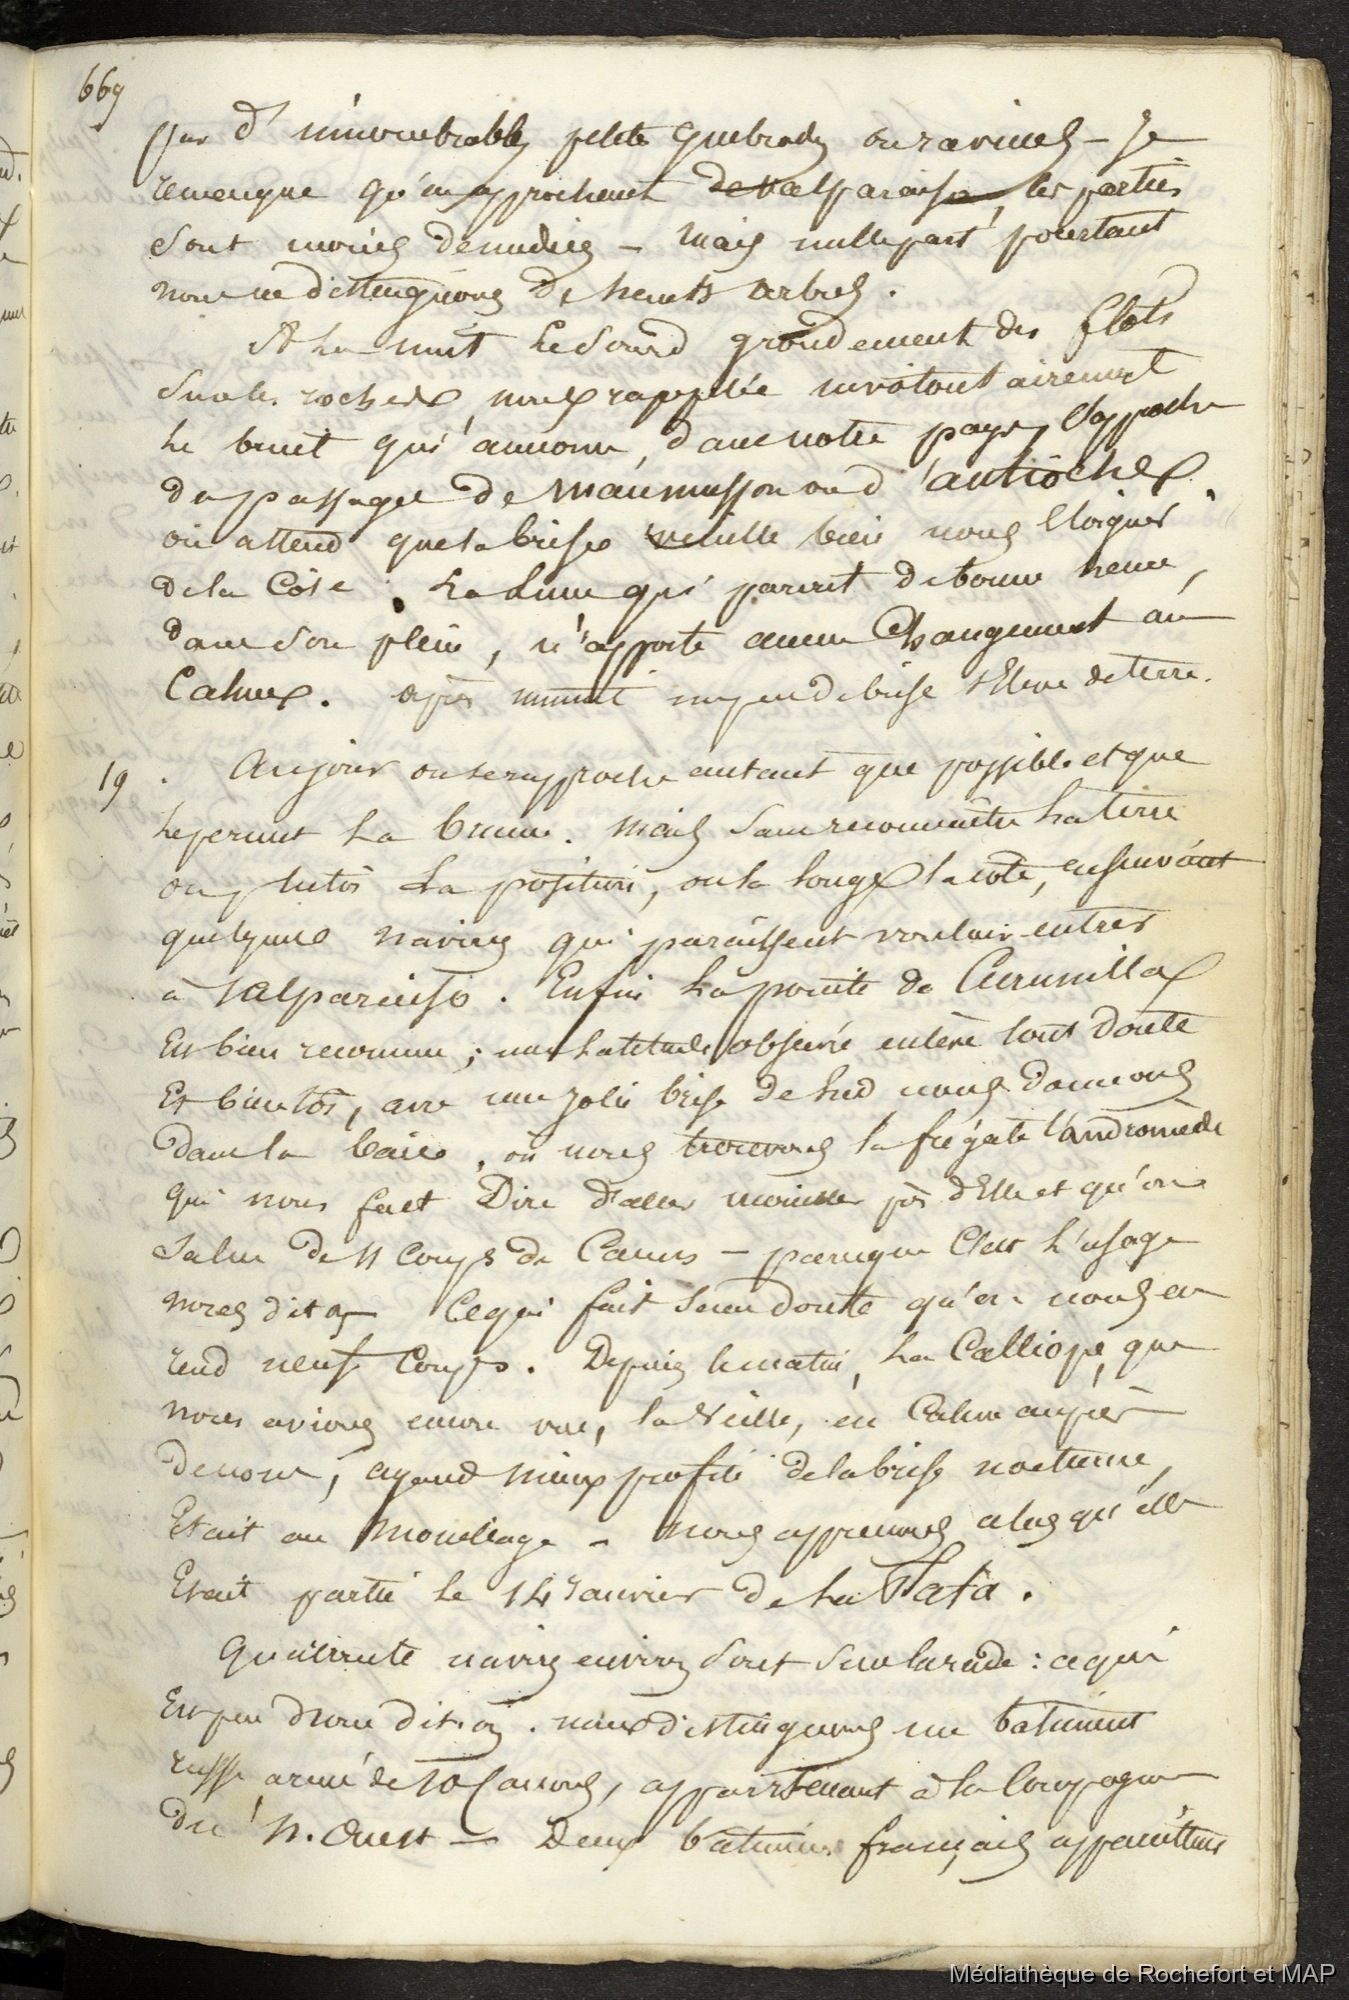 669
par d'innombrables petits quebradas ou ravines – Je
remarque qu'en approchant de valparaiso, les parties
sont moins denudées – Mais nulle part pourtant
nous ne distinguons de hauts arbres.
A la nuit le sourd grondement des flots
sur les rochers nous rappelle involontairement
le bruit qui annonce, dans notre pays, l'approche
du passage de Maumusson ou d'antioche.
on attend que la brise veuille bien nous eloigner
de la Côte. La Lune qui parait de bonne heure,
dans son plein, n'apporte aucun Changement au
Calme. après minuit un peu de brise s'Elève de terre.
19 . Au jour on se rapproche autant que possible et que
le permet la brume. Mais sans reconnaître la terre
ou plutôt la position, on la longe la côte, en suivant
quelques navires qui paraissent vouloir entrer
à Valparaiso. Enfin la pointe de Curumilla
Est bien reconnue; une latitude observée enlève tout doute
Et bientôt, avec une jolie brise de sud nous donnons
dans la baie, où nous trouvons la frégate l'andromède
qui nous fait Dire d'aller mouiller près d'Elle et qu'on
salue de 11 Coups de Canons – parceque C'est l'usage
nous dit on Ce qui fait sans doute qu'on nous en
rend neuf Coups. Depuis le matin, la Calliope, que
nous avions encore vue, la Veille, en Calme auprès
de nous, ayant mieux profité de la brise nocturne,
Etait au Mouillage – nous apprenons alors qu'elle
Etait partie le 14 Janvier de la Plata.
Quarante navires environ sont sur la rade : ce qui
Est peu nous dit-on. nous distinguons un batiment
russe, armé de 10 Canons, appartenant à la Compagnie
du N. Ouest – Deux batimens français appareillent
Médiathèque de Rochefort et MAP